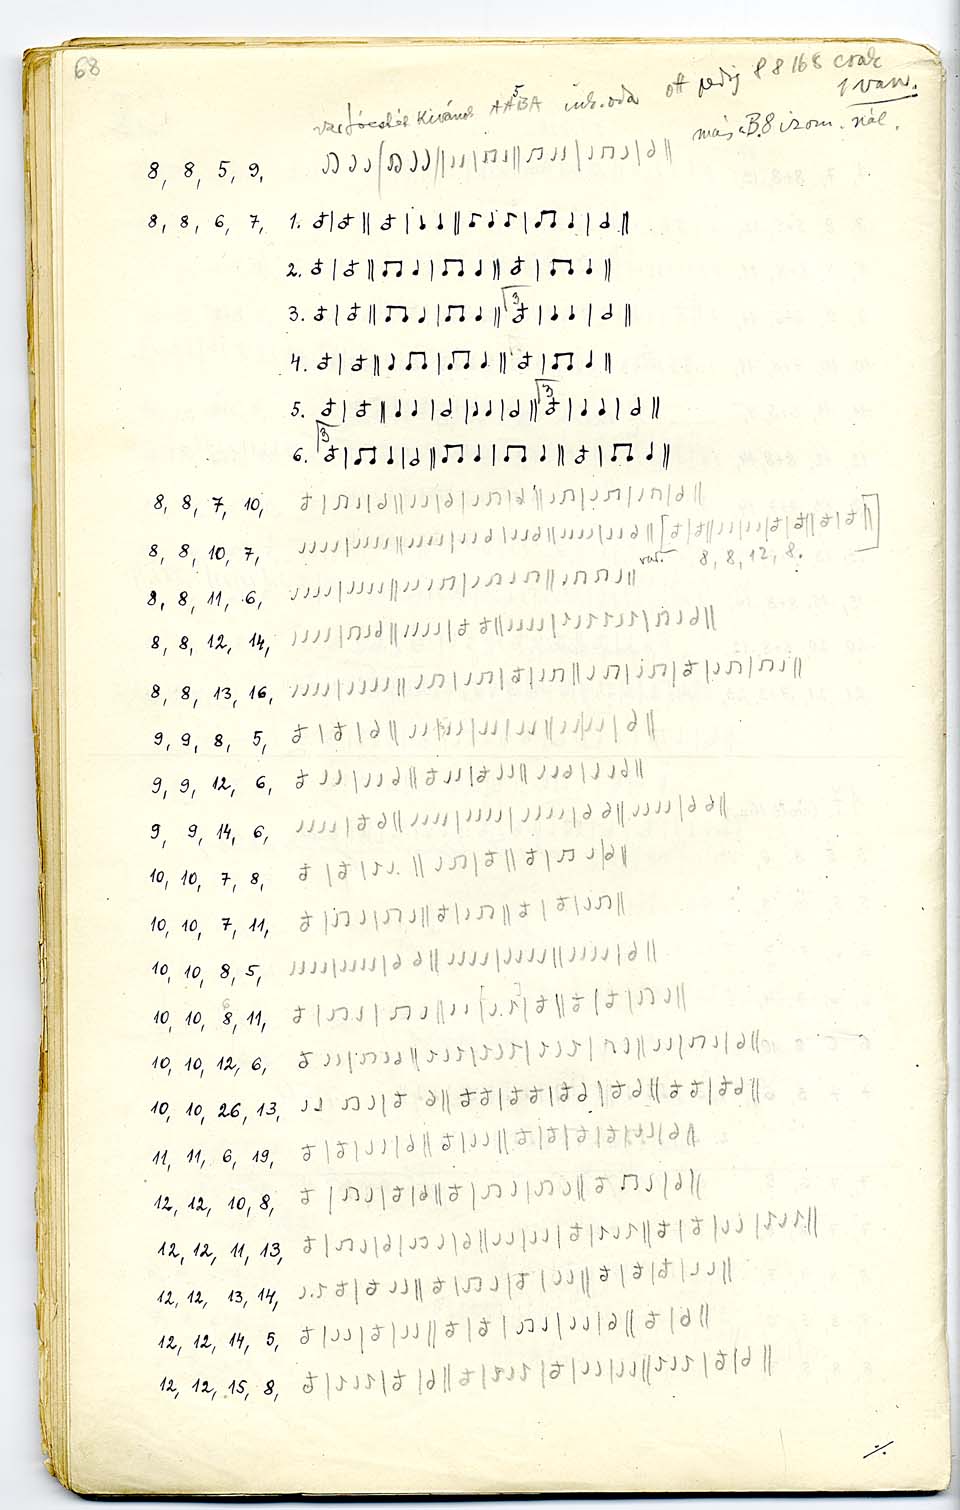 68
AA⁵BA ott pedig 8 8 16 8 csak
1 van.
más B.8 izom. nál.
8, 8, 5, 9,
8, 8, 6, 7, 1.
2.
3. 3
4.
5. 3
6. 3
8, 8, 7, 10,
8, 8, 10, 7,
var. 8, 8, 12, 8.
8, 8, 11, 6,
8, 8, 12, 14,
8, 8, 13, 16,
9, 9, 8, 5,
9, 9, 12, 6,
9, 9, 14, 6,
10, 10, 7, 8,
10, 10, 7, 11,
10, 10, 8, 5,
10, 10, 8, 11,
10, 10, 12, 6,
10, 10, 26, 13,
11, 11, 6, 19,
12, 12, 10, 8,
12, 12, 11, 13,
12, 12, 13, 14,
12, 12, 14, 5,
12, 12, 15, 8,
./.